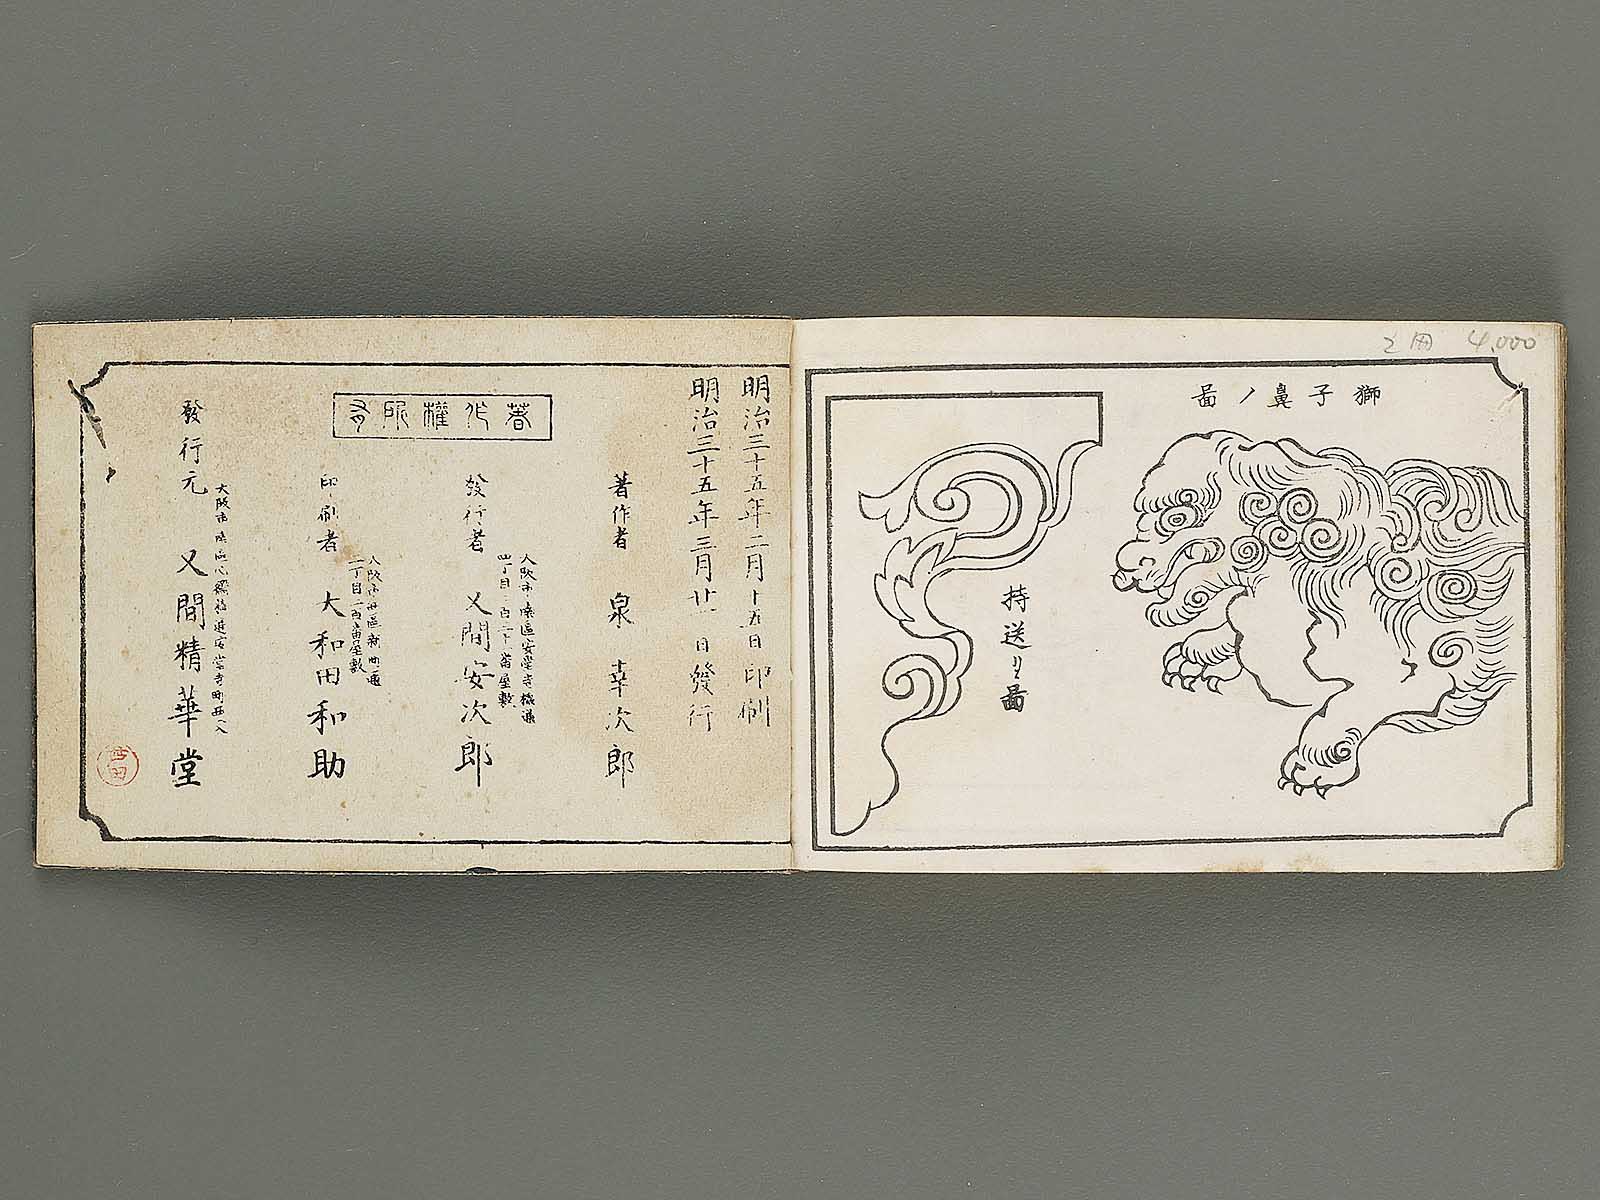 2冊 4,000
獅子鼻ノ圖
持送リ圖
明治三十五年二月十五日印刷
明治三十五年三月廿一日發行
著作権所有
著作者 泉幸次郎
大阪市南區安堂寺橋通
四丁目二百二十番屋敷
發行者 又間安次郎
二丁目一百番屋敷
印刷者 大和田和助
大阪市南區心斎橋通安堂寺町西へ入
發行元 又間精華堂
西田